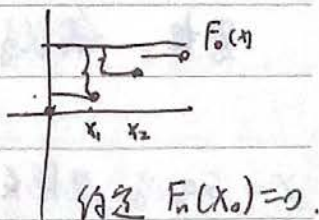 F₀(x)
x₁ x₂
约定 Fₙ(x₀)=0.